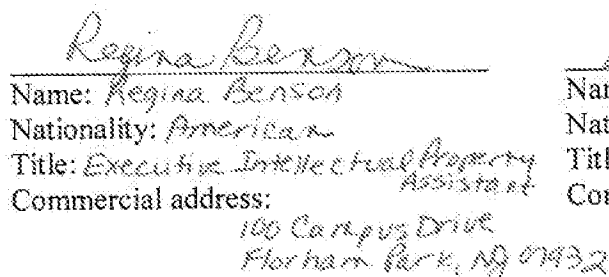 Regina Benson
Name: Regina Benson
Nationality: American
Title: Executive Intellectual Property
Assistant
Commercial address:
100 Campus Drive
Florham Park, NJ 07932
Nar
Nat
Titl
Cor